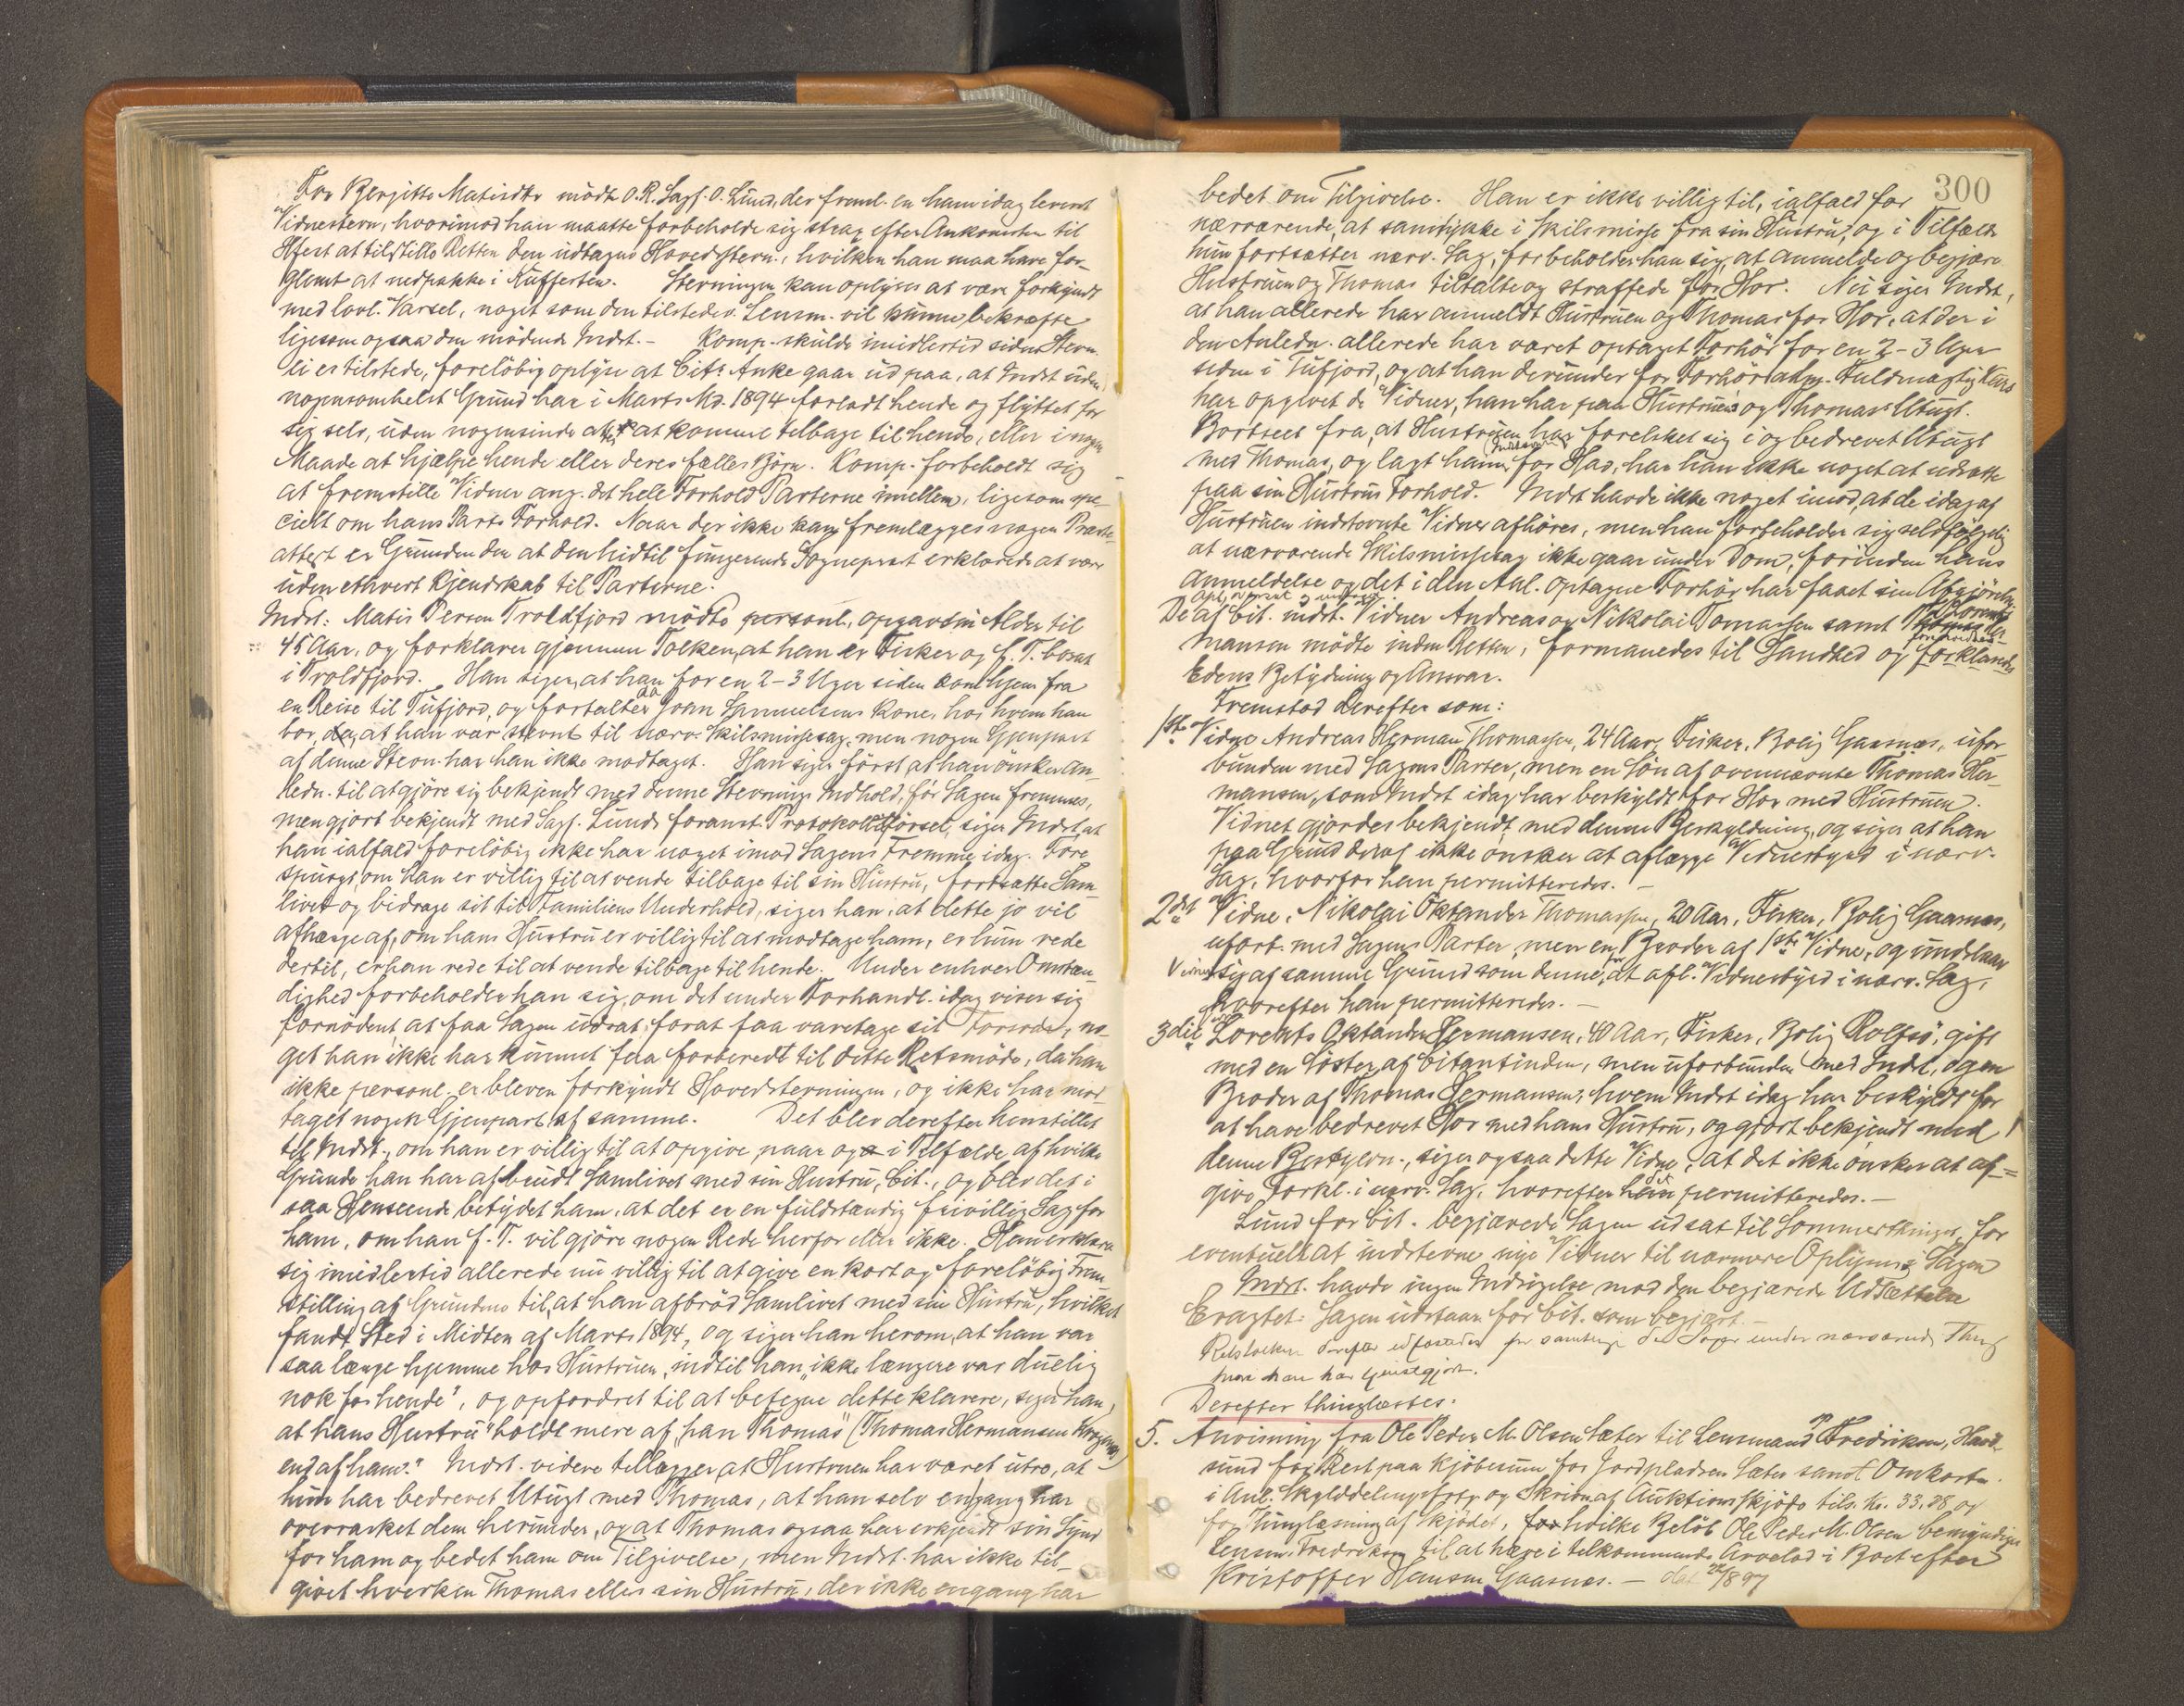 For Bergitte Matisdtr mödte O.R. Sagf. O. Lund, der freml. en ham idag leveret
Vidnestevn., hvorimod han maatte forbeholde sig strax efter Ankomsten til
Hfest at tilstille Retten den udtagne Hovedstevn., hvilken han maa have for-
glemt at nedpakke i Kufferten. Stevningen kan oplyses at være forkyndt
med lovl. Varsel, noget som den tilstedev. Lensm. vil kunne bekræfte
ligesom ogsaa den mödende Indst. - Komp. skulde imidlertid siden Stevn.
ei er tilstede, foreløbig oplyse at Cit's Anke gaar ud paa, at Indst uden
nogensomhelst Grund har i Marts Md. 1894 forladt hende og flyttet for
sig selv, uden nogensinde at at komme tilbage til hende, eller i nogen
Maade at hjælpe hende eller deres fælles Børn. Komp. forbeholdt sig
at fremstille Vidner ang. det hele Forhold Parterne imellem, ligesom spe-
cielt om hans Parts Forhold. Naar der ikke kan fremlægges nogen Præste-
attest er Grunden den at den hidtil fungerende Sogneprest erklærede at være
uden ethvert Kjendskab til Parterne.
Indst: Matis Persen Troldfjord mödte personl., opgav sin Alder til
45 Aar, og forklarer gjennem Tolken, at han er Fisker og f. T. bosat
i Troldfjord. Han siger, at han for en 2-3 Uger siden kom hjem fra
en Reise til Tufjord, og fortalte da Joan Samuelsens Kone, hos hvem han
bor, at han var stevnt til nærv. Skilsmissesag, men nogen Gjenpart
af denne Stevn. har han ikke modtaget. Han siger først, at han ønsker An-
ledn. til at gjøre sig bekjendt med denne Stevnings Indhold, før Sagen fremmes,
men gjort bekjendt med Sagf. Lunds foranst. Protokoltilførsel, siger Indst, at
han ialfald foreløbig ikke har noget imod Sagens Fremme idag. Fore
spurgt, om han er villig til at vende tilbage til sin Hustru, fortsætte Sam-
livet og bidrage sit til Familiens Underhold, siger han, at dette jo vil
afhænge af, om hans Hustru er villig til at modtage ham, er hun rede
dertil, er han rede til at vende tilbage til hende. Under enhver Omstæn-
dighed forbeholder han sig, om det under Forhandl. idag viser sig
fornødent at faa Sagen udsat, forat faa varetage sit Forsvar, no-
get han ikke har kunnet faa forberedt til dette Retsmöde, da han
ikke personl. er bleven forkyndt Hovedstevningen, og ikke har mod-
taget nogen Gjenpart af samme. Det blev derefter henstillet
til Indst., om han er villig til at opgive, naar og i Tilfælde af hvilke
Grunde han har afbrudt Samlivet med sin Hustru, Cit., og blev det i
saa Henseende betydet ham, at det er en fuldstændig frivillig Sag for
ham, om han f. T. vil gjöre nogen Rede herfor eller ikke. Han erklærer
sig imidlertid allerede nu villig til at give en kort og foreløbig Frem-
stilling af Grundene til, at han afbrød Samlivet med sin Hustru, hvilket
fandt Sted i Midten af Marts 1894, og siger han herom, at han var
saa længe hjemme hos Hustruen, indtil han "ikke længere var duelig
nok for hende", og opfordret til at betegne dette klarere, siger han,
at hans Hustru "holdt mere af, han Thomas" (Thomas Hermansen
end af ham." Indst. videre tillægger, at Hustruen har været utro, at
hun har bedrevet Utugt med Thomas, at han selv engang har
overrasket dem herunder, og at Thomas ogsaa har erkjendt sin Synd
for ham og bedet ham om Tilgivelse, men Indst. har ikke til-
givet hverken Thomas eller sin Hustru, der ikke engang har
300
bedet om Tilgivelse. Han er ikke villig til, ialfald for
nærværende, at samtykke i Skilsmisse fra sin Hustru, og i Tilfælde
hun fortsætter nærv. Sag, forbeholder han sig, at anmelde og begjære
Hustruen og Thomas tiltalte og straffede for Hor. Nu siger Indst,
at han allerede har anmeldt Hustruen og Thomas for Hor, at der i
den Anledn. allerede har været optaget Forhör for en 2-3 Uger
siden i Tufjord, og at han derunder for Forhörsadm. Fuldmægtig
har opgivet de Vidner, han har paa Hustruens og Thomas's Utugt.
Bortseet fra, at Hustruen har forelsket sig i og bedrevet Utugt
med Thomas, og lagt ham for Had, har han ikke noget at udsætte
paa sin Hustrus Forhold. Indst havde ikke noget imod, at de idag af
Hustruen indstevnte Vidner afhöres, men han forbeholder sig selvfølgelig
at nærværende Skilsmissesag ikke gaar under Dom, forinden hans
Anmeldelse og det i den Anl. optagne Forhör har faaet sin Afgjörelse
De af Cit. indst. Vidner Andreas og Nikolai Tomassen samt Lorents Her
mansen mödte inden Retten, formanedes til Sandhed og forklaredes
Edens Betydning og Ansvar.
Fremstod derefter som:
1ste Vidne Andreas Herman Thomassen, 24 Aar, Fisker, Bolig Gaasnæs, ufor
bunden med Sagens Parter, men en Sön af ovennævnte Thomas Her-
mansen, som Indst idag har beskyldt for Hor med Hustruen.
Vidnet gjordes bekjendt med denne Beskyldning, og siger at han
paa Grund deraf ikke ønsker at aflægge Vidnesbyrd i nærv.
Sag, hvorfor han permitteredes. -
2det Vidne, Nikolai Oktander Thomassen, 20 Aar, Fisker, Bolig Gaasnæs,
uforb. med Sagens Parter, men en Broder af 1ste Vidne, og undslaar
sig af samme Grund som denne, at afl. Vidnesbyrd i nærv. Sag,
hvorefter han permitteredes. -
3die Lorents Oktander Hermansen, 40 Aar, Fisker, Bolig Rolfsö, gift
med en Söster af Citantinden, men uforbunden med Indst, og en
Broder af Thomas Hermansen, hvem Indst idag har beskyldt for
at have bedrevet Hor med hans Hustru, og gjort bekjendt med
denne Beskyldn., siger ogsaa dette Vidne, at det ikke ønsker at af-
give Forkl. i nærv. Sag, hvorefter permitteredes. -
Lund for Cit. begjærede Sagen udsat til Sommerthinget, for
eventuelt at indstevne nye Vidner til nærmere Oplysning i Sagen
Indst. havde ingen Indsigelse mod den begjærede Udsættelse
Eragtet: Sagen udstaar for Cit. som begjært. -
Retslæsken derefter for samtlige under nærværende Thing
Derefter thinglæstes:
5. Anvisning fra Ole Peder M. Olsen Sæter til Lensmand Fredriksen, Havö-
sund for Rest paa Kjöbesum for Jordpladsen Sæter samt Omkostn.
i Anl. Skylddelingsforr. og Skrivn. af Auktionsskjöde tils. Kr. 33.38 og
for Thinglæsning af Skjödet, for hvilke Beløb Ole Peder M. Olsen bemyndiger
Lensm. Fredriksen til at hæve i tilkommende Arvelod i Boet efter
Kristoffer Hansen Gaasnæs. -